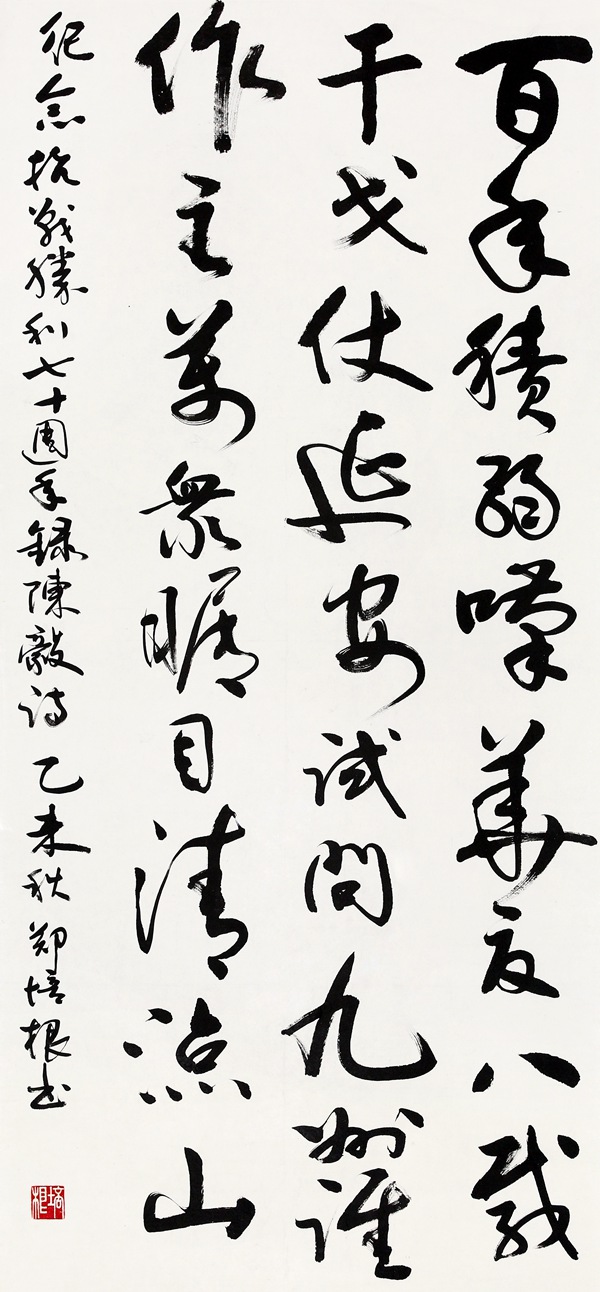 百年積弱嘆華夏八載
干戈仗延安試問九州誰
作主萬衆瞩目清凉山
紀念抗戰勝利七十週年録陳毅詩 乙未秋 郑培根书
培根